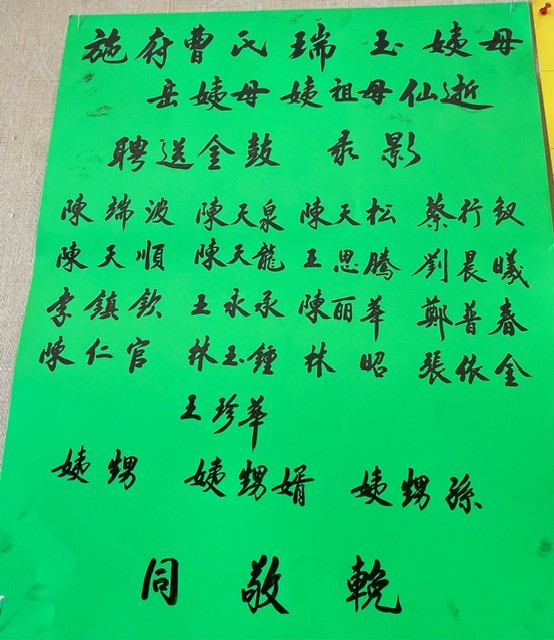 施府曹氏瑞玉姨母
岳姨母姨祖母仙逝
聘送金鼓 录影
陳端波 陳天泉 陳天松 蔡行釵
陳天順 陳天龍 王思騰 劉晨曦
李鎮欽 王永承 陳丽華 鄭普春
陳仁官 林玉鍾 林昭 張依金
王珍華
姨甥 姨甥婿 姨甥孫
同敬輓